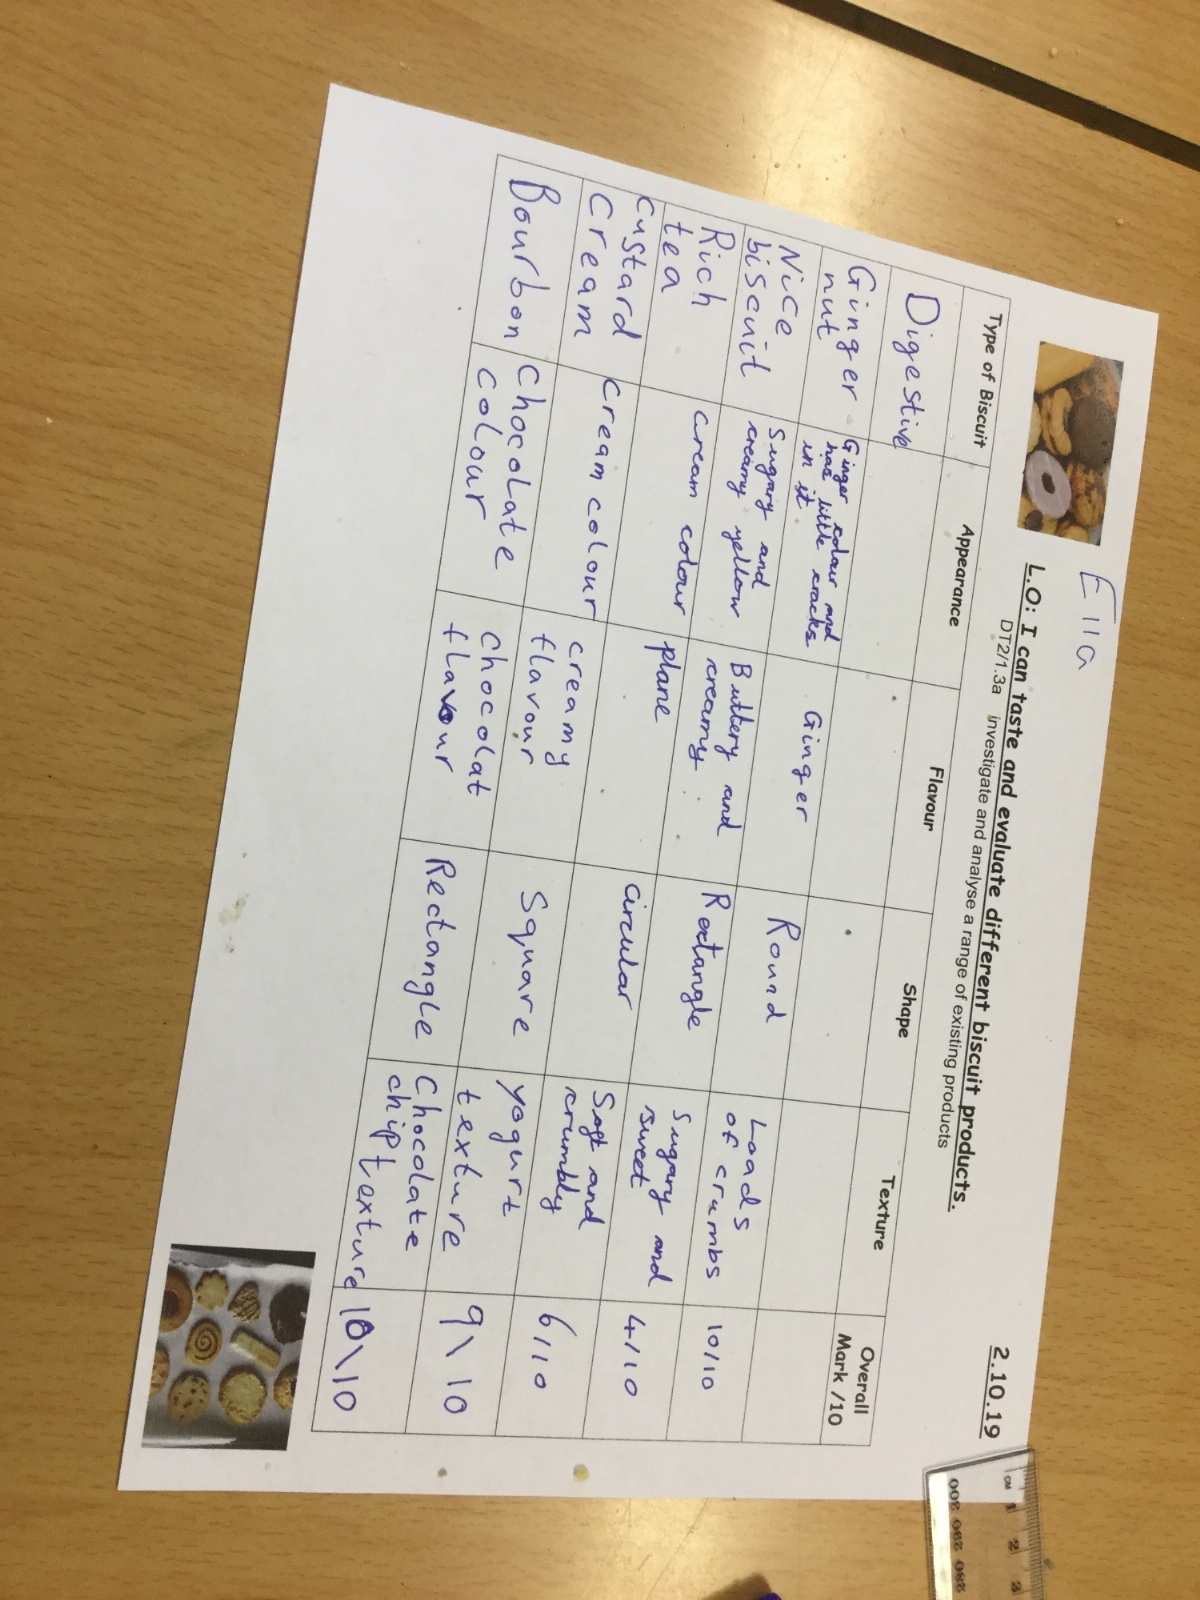 Ella
2.10.19
L.O: I can taste and evaluate different biscuit products.
DT2/1.3a investigate and analyse a range of existing products
Type of Biscuit
Appearance
Flavour
Shape
Texture
Overall
Mark /10
Digestive
Ginger
nut
Ginger colour and
has little cracks
in it
Ginger
Round
Loads
of crumbs
10/10
Nice
biscuit
Sugary and
creamy yellow
Buttery and
creamy
Rectangle
Sugary and
sweet
4/10
Rich
tea
cream colour
plane
circular
Soft and
crumbly
6/10
Custard
Cream
cream colour
creamy
flavour
Square
yogurt
texture
9\10
Bourbon
Chocolate
colour
chocolat
flavour
Rectangle
Chocolate
chip texture
10\10
CM 1 2 3
300 290 280